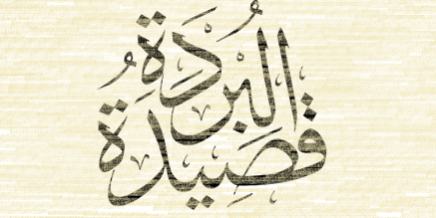 قَصِيدَةُ
البُرْدَةِ